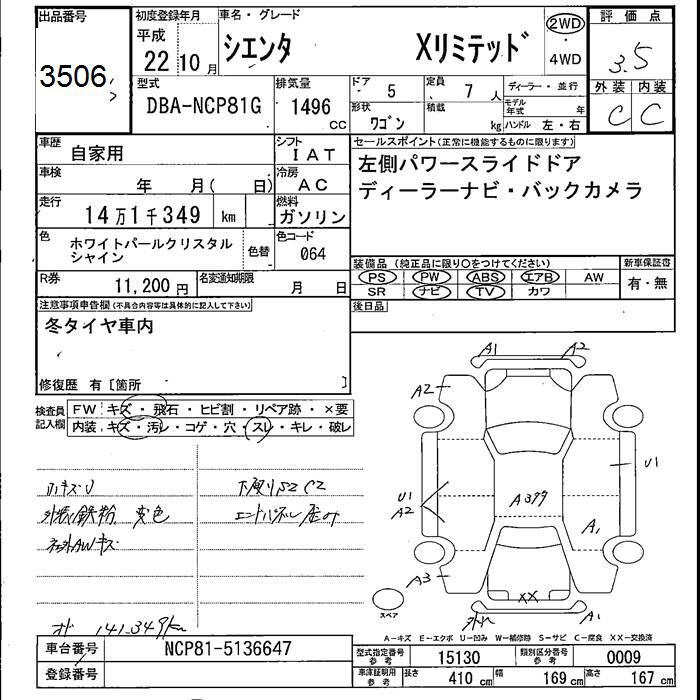 出品番号
3506
初度登録年月
平成
22 10 月
車名・グレード
シエンタ Xリミテッド
2WD
・
4WD
評価点
3.5
外装 内装
C C
型式
DBA-NCP81G
排気量
1496
CC
ドア
5
形状
ワゴン
定員
7 人
積載
kg
ディーラー・並行
モデル年式
年
ハンドル 左・右
車歴
自家用
シフト
IAT
車検
年 月( 日)
冷房
AC
走行
14万1千349 km
燃料
ガソリン
色
ホワイトパールクリスタル
シャイン
色替
色コード
064
R券
11,200 円
名変通知期限
月 日
セールスポイント(正常に機能するものに限ります)
左側パワースライドドア
ディーラーナビ・バックカメラ
装備品 (純正品に限り○をつけてください)
PS PW ABS エアB AW
SR ナビ TV カワ
新車保証書
有・無
後日品
注意事項申告欄(不具合内容等は具体的に記入して下さい)
冬タイヤ車内
修復歴 有〔箇所 〕
検査員
記入欄
FW キズ・飛石・ヒビ割・リペア跡・×要
内装 キズ・汚レ・コゲ・穴・スレ・キレ・破レ
外装鉄粉 変色
社外AWキズ
下廻りS2 C2
141.349km
A1 A2
A2
U1
U1
A2
A377
A1
A3
XX
外れ A1
スペア
A−キズ E−エクボ U−凹み W−補修跡 S−サビ C−腐食 XX−交換済
車台番号
NCP81-5136647
登録番号
型式指定番号
参考
15130
類別区分番号
参考
0009
車庫証明用
参考
長さ
410 cm
幅
169 cm
高さ
167 cm